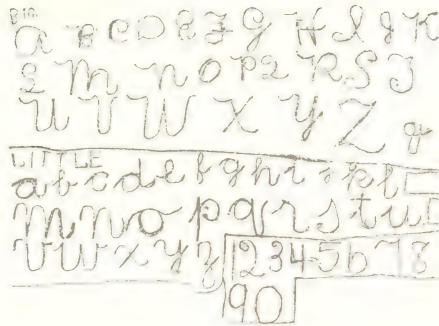 BIG
a B C D E F G H I J K
L M N O P Q R S T
U V W X Y Z
LITTLE
a b c d e f g h i j k l
m n o p q r s t u
v w x y z 1 2 3 4 5 6 7 8
9 0